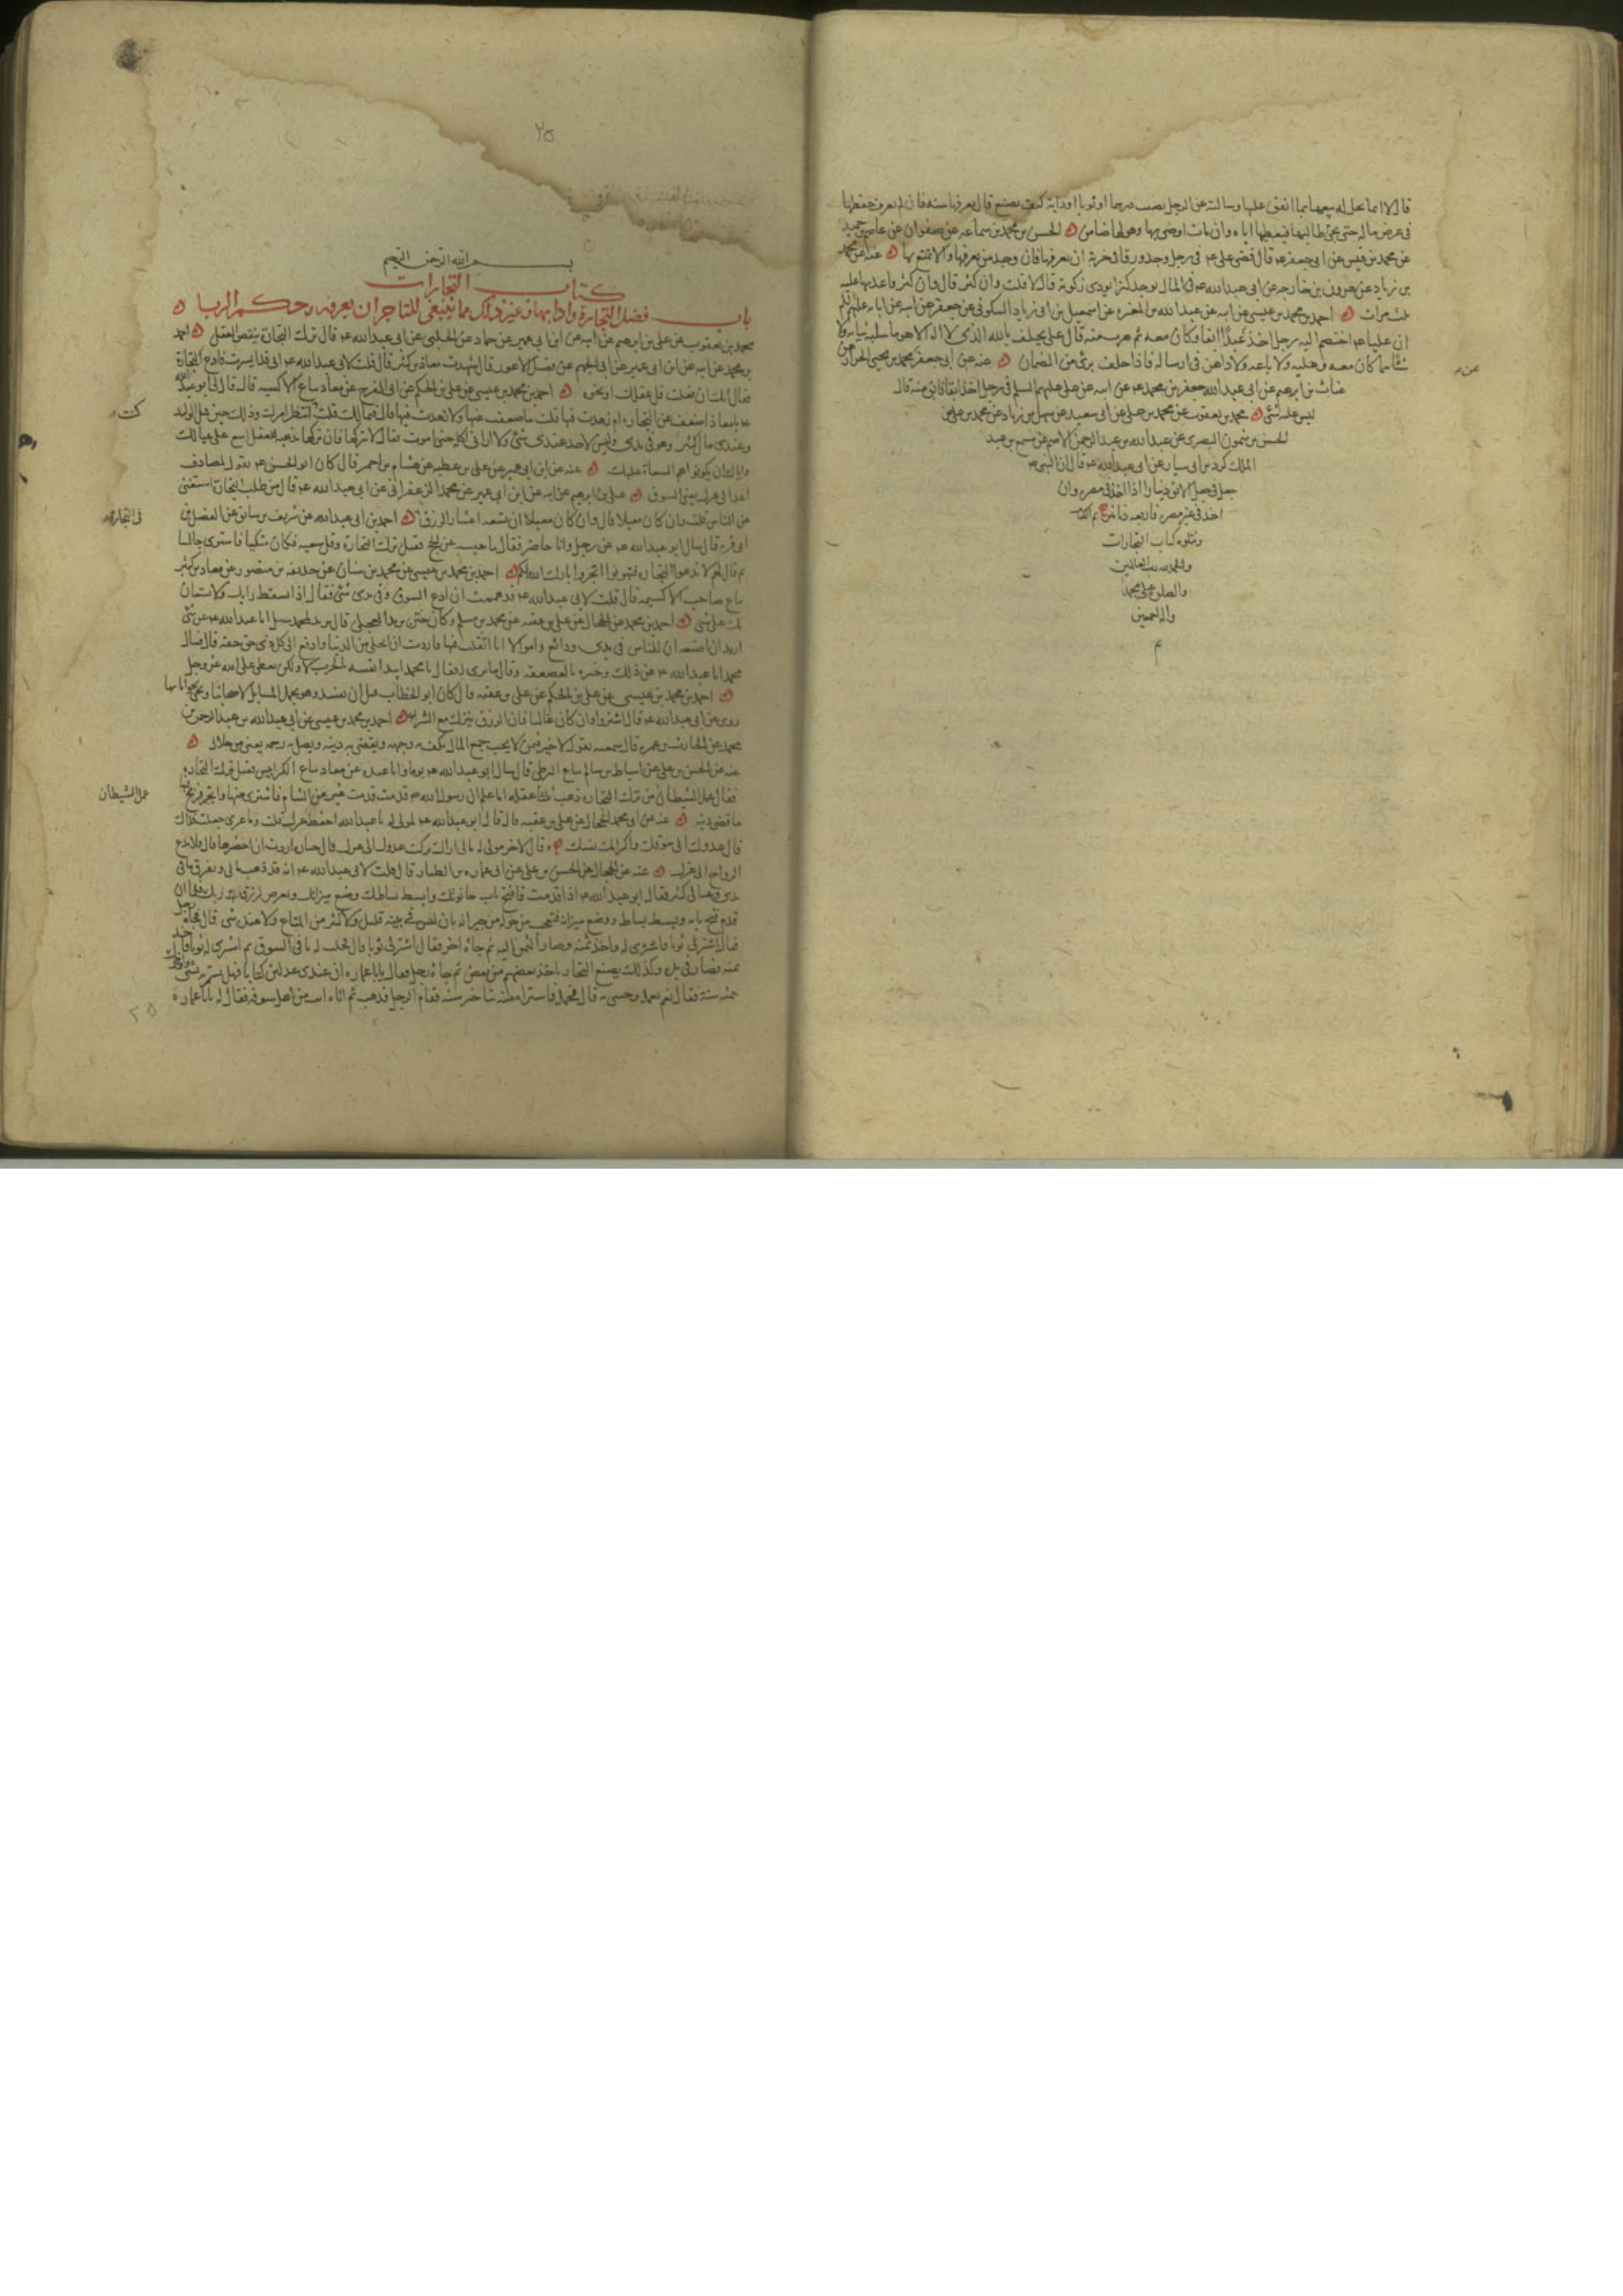 قال لا انما يحل له بيعها بما انفق عليها وسالته عن الرجل يصيب درهما او ثوبا او دابة كيف يصنع قال يعرفها سنة فان لم يعرف حفظها
في عرض ماله حتى يجئ طالبها فيعطيها اياه وان مات اوصى بها وهو لها ضامن الحسن بن محمد بن سماعة عن صفوان عن عاصم بن حميد
عن محمد بن قيس عن ابي جعفر ع قال قضى علي ع في رجل وجد ورقا في خربة ان يعرفها فان وجد من يعرفها والا تمتع بها عنه عن محمد
بن زياد عن هرون بن خارجة عن ابي عبدالله ع في المال يوجد كنزا يودى زكوته قال لا قلت وان كثر قال وان كثر فاعدتها عليه
ثلث مرات احمد بن محمد بن عيسى عن ابيه عن عبدالله بن المغيرة عن اسمعيل بن ابي زياد السكوني عن جعفر عن ابيه عن ابائه عليهم السلم
ان عليا ع اختصم اليه رجل اخذ عبدا ابقا وكان معه ثم هرب منه قال علي يحلف بالله الذي لا اله الا هو ما سلبه ثيابه ولا
شيئا مما كان معه وعليه ولا باعه ولا داهن في ارساله فاذا حلف برئ من الضمان عنه عن ابي جعفر محمد بن يحيى الخزاز عن
غياث بن ابرهيم عن ابي عبدالله جعفر بن محمد ع عن ابيه عن علي عليهم السلم في رجل اخذ ابقا فابق منه قال
ليس عليه شئ محمد بن يعقوب عن محمد بن يحيى عن ابي سعيد عن سهل بن زياد عن محمد بن
الحسن بن شمون البصري عن عبدالله بن عبدالرحمن الاصم عن مسمع بن عبد
الملك كردين ابي سيار عن ابي عبدالله ع قال ان النبي ص
جعل في جعل الابق دينارا اذا اخذ في مصره وان
اخذ في غير مصره فاربعة دنانير تم الكتاب
ويتلوه كتاب التجارات
والحمد لله رب العالمين
والصلوة على محمد
واله اجمعين
م
عن
٢٥
بسم الله الرحمن الرحيم
كتاب التجارات
باب فضل التجارة وادابها وغير ذلك مما ينبغي للتاجر ان يعرفه وحكم الربا
محمد بن يعقوب عن علي بن ابرهيم عن ابيه عن ابن ابي عمير عن حماد عن الحلبي عن ابي عبدالله ع قال ترك التجارة ينقص العقل احمد
بن محمد عن ابيه عن ابن ابي عمير عن ابي الجهم عن فضيل الاعور قال شهدت معاذ بن كثير قال قلت لابي عبدالله ع اني قد ايسرت فادع التجارة
فقال انك ان فعلت قل عقلك او نحوه احمد بن محمد بن عيسى عن علي بن الحكم عن ابي الفرج عن معاذ بياع الاكسية قال قال لي ابو عبدالله
ع يا معاذ اضعفت عن التجارة ام زهدت فيها قلت ما ضعفت عنها ولا زهدت فيها قال فما لك قلت انتظر امرك وذلك حين قتل الوليد
وعندي مال كثير وهو في يدي وليس لاحد عندي شئ ولا اراني اكله حتى اموت فقال لا تتركها فان تركها مذهبة للعقل اسع على عيالك
واياك ان يكونوا هم السعاة عليك عنه عن ابن ابي عمير عن علي بن عطية عن هشام بن احمر قال كان ابو الحسن ع يقول لمصادف
اغد الى عزك يعني السوق علي بن ابرهيم عن ابيه عن ابن ابي عمير عن محمد الزعفراني عن ابي عبدالله ع قال من طلب التجارة استغنى
عن الناس قلت وان كان معيلا قال وان كان معيلا ان تسعة اعشار الرزق احمد بن ابي عبدالله عن شريف بن سابق عن الفضل بن
ابي قرة قال سال ابو عبدالله ع عن رجل وانا حاضر فقال ما حبسه عن الحج فقيل ترك التجارة وقل سعيه فكان متكيا فاستوى جالسا
ثم قال لهم لا تدعوا التجارة فتهونوا اتجروا بارك الله لكم احمد بن محمد بن عيسى عن محمد بن سنان عن حذيفة بن منصور عن معاذ بن كثير
بياع صاحب الاكسية قال قلت لابي عبدالله ع قد هممت ان ادع السوق وفي يدي شئ فقال اذا يسقط رايك ولا يستعان
بك على شئ احمد بن محمد عن الحجال عن علي بن عقبة عن محمد بن مسلم وكان ختن بريد العجلي قال بريد لمحمد سل لي ابا عبدالله ع عن شئ
اريد ان اصنعه ان للناس في يدي ودائع واموالا انا اتقلب فيها فاردت ان اتخلى من الدنيا وادفع الى كل ذي حق حقه قال فسال
محمد ابا عبدالله ع عن ذلك وخبره بالقصة وقال ما ترى له فقال يا محمد ايبدا نفسه بالحرب لا ولكن يعطي على الله عز وجل
احمد بن محمد بن عيسى عن علي بن الحكم عن علي بن عقبة قال كان ابو الخطاب قبل ان يفسد وهو يحمل المسايل لاصحابنا ويجئ بجواباتها
روى عن ابي عبدالله ع قال اشتروا وان كان غاليا فان الرزق ينزل مع الشراء احمد بن محمد بن عيسى عن ابي عبدالله عن عبدالرحمن بن
محمد عن الحارث بن عمرو قال سمعته يقول لا خير فيمن لا يحب جمع المال يكف به وجهه ويقضي به دينه ويصل به رحمه يعني من حلال
عنه عن الحسن بن علي عن اسباط بن سالم بياع الزطي قال سال ابو عبدالله ع يوما وانا عنده عن معاذ بياع الكرابيس فقيل ترك التجارة
فقال عمل الشيطان من ترك التجارة ذهب ثلثا عقله اما علم ان رسول الله ص قدمت عير من الشام فاشترى منها واتجر فربح فيها
ما قضى دينه عنه عن ابي محمد الحجال عن علي بن عقبة قال قال ابو عبدالله ع لمولى له يا عبدالله احفظ عزك قلت وما عزي جعلت فداك
قال غدوك الى سوقك واكرامك نفسك وقال لاخر مولى له مالي اراك تركت غدوك الى عزك قال جنازة اردت ان احضرها قال فلا تدع
الرواح الى عزك عنه عن الحجال عن الحسن بن علي عن ابي عمارة بن الطيار قال قلت لابي عبدالله ع انه قد ذهب مالي وتفرق ما في
يدي وعيالي كثير فقال ابو عبدالله ع اذا قدمت فافتح باب حانوتك وابسط بساطك وضع ميزانك وتعرض لرزق ربك فلما ان
قدم فتح بابه وبسط بساطه ووضع ميزانه فتعجب من حوله من جيرانه بان ليس في بيته قليل ولا كثير من المتاع ولا عنده شئ قال فجاءه رجل
فقال اشتر لي ثوبا فاشترى له واخذ ثمنه وصار الثمن اليه ثم جاءه اخر فقال اشتر لي ثوبا قال فجلب له ما في السوق ثم اشترى له ثوبا فاخذ
ثمنه فصار في يده وكذلك يصنع التجار ياخذ بعضهم من بعض ثم جاءه رجل فقال يا با عمارة ان عندي عدلين كتانا فهل تشتريه بشئ واوخرك
ثمنه سنة فقال نعم احمله وجئني به قال فحمله فاشتراه منه بتاخير سنة فقام الرجل فذهب ثم اتاه ات من اهل السوق فقال له يا با عمارة
كنت
في التجارة
عمل الشيطان
٢٥